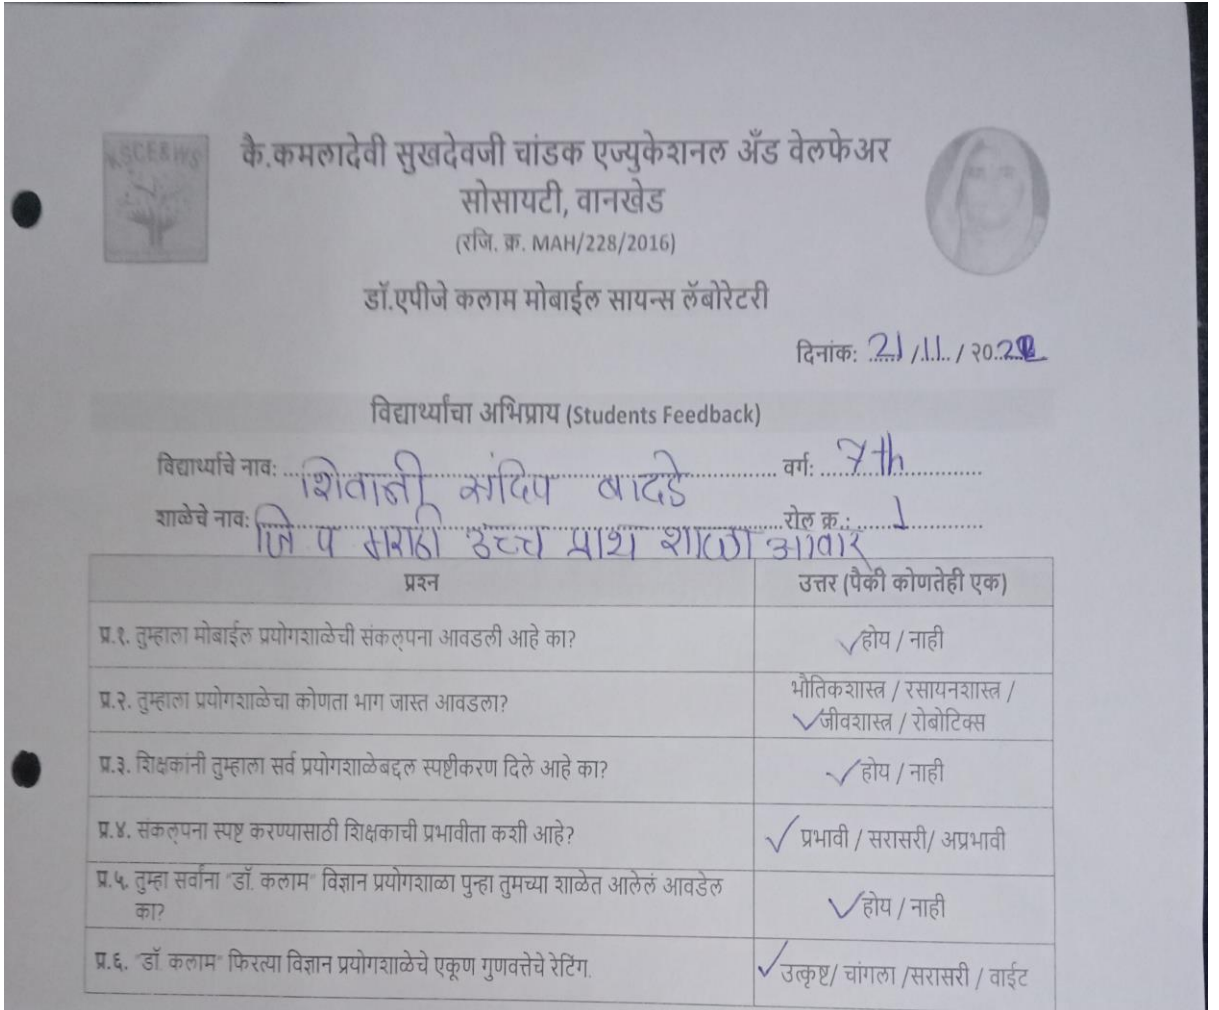 KSCE&WS
कै.कमलादेवी सुखदेवजी चांडक एज्युकेशनल अँड वेलफेअर
सोसायटी, वानखेड
(रजि. क्र. MAH/228/2016)
डॉ.एपीजे कलाम मोबाईल सायन्स लॅबोरेटरी
दिनांक: 21/11/२०22
विद्यार्थ्यांचा अभिप्राय (Students Feedback)
विद्यार्थ्याचे नाव: शिवानी संदिप बादडे वर्ग: 7th
शाळेचे नाव: जि प मराठी उच्च प्राथ शाळा आवार रोल क्र.: 1
प्रश्न उत्तर (पैकी कोणतेही एक)
प्र.१. तुम्हाला मोबाईल प्रयोगशाळेची संकल्पना आवडली आहे का? ✓होय / नाही
प्र.२. तुम्हाला प्रयोगशाळेचा कोणता भाग जास्त आवडला? भौतिकशास्त्र / रसायनशास्त्र /
✓जीवशास्त्र / रोबोटिक्स
प्र.३. शिक्षकांनी तुम्हाला सर्व प्रयोगशाळेबद्दल स्पष्टीकरण दिले आहे का? ✓होय / नाही
प्र.४. संकल्पना स्पष्ट करण्यासाठी शिक्षकाची प्रभावीता कशी आहे? ✓ प्रभावी / सरासरी/ अप्रभावी
प्र.५. तुम्हा सर्वांना "डॉ. कलाम" विज्ञान प्रयोगशाळा पुन्हा तुमच्या शाळेत आलेलं आवडेल
का? ✓होय / नाही
प्र.६. "डॉ. कलाम" फिरत्या विज्ञान प्रयोगशाळेचे एकूण गुणवत्तेचे रेटिंग. ✓उत्कृष्ट/ चांगला /सरासरी / वाईट